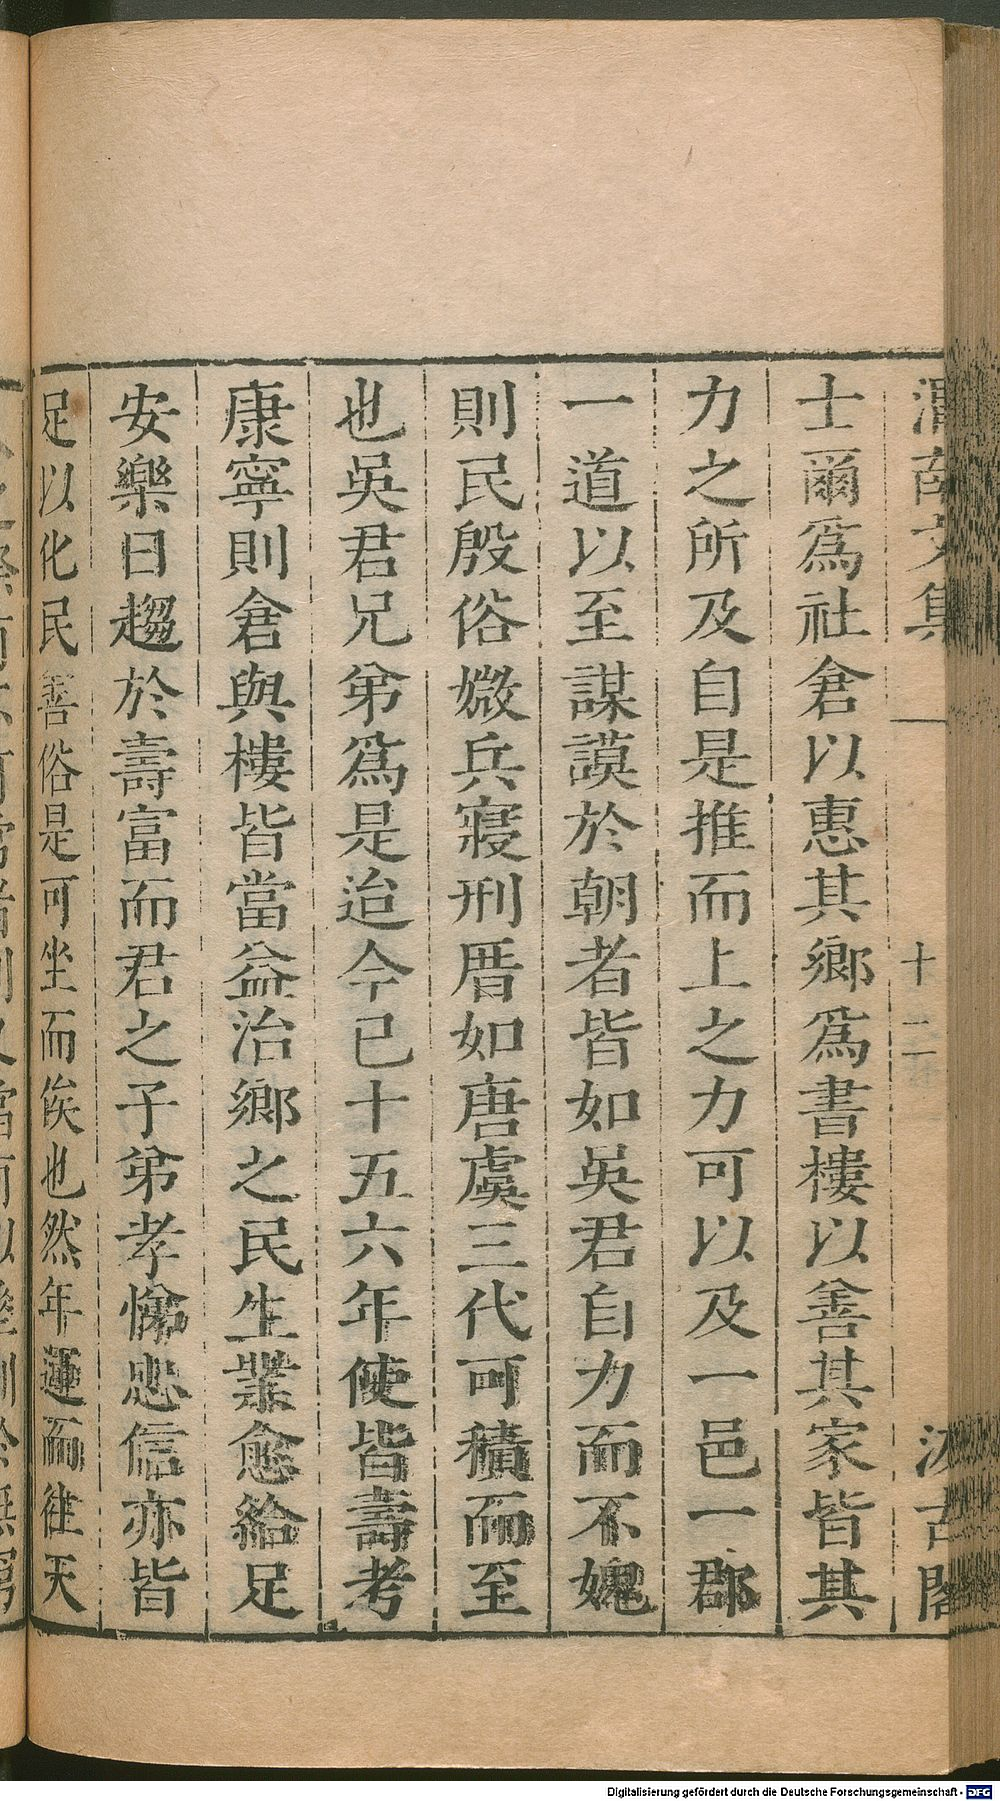 渭南文集 十二 汲古閣
士爾爲社倉以惠其鄉爲書樓以善其家皆其
力之所及自是推而上之力可以及一邑一郡
一道以至謀謨於朝者皆如吳君自力而不媿
則民殷俗媺兵寢刑厝如唐虞三代可積而至
也吳君兄弟爲是迨今已十五六年使皆壽考
康寧則倉與樓皆當益治鄉之民生業愈給足
安樂日趨於壽富而君之子弟孝悌忠信亦皆
足以化民善俗是可坐而俟也然年運而往天
Digitalisierung gefördert durch die Deutsche Forschungsgemeinschaft - DFG